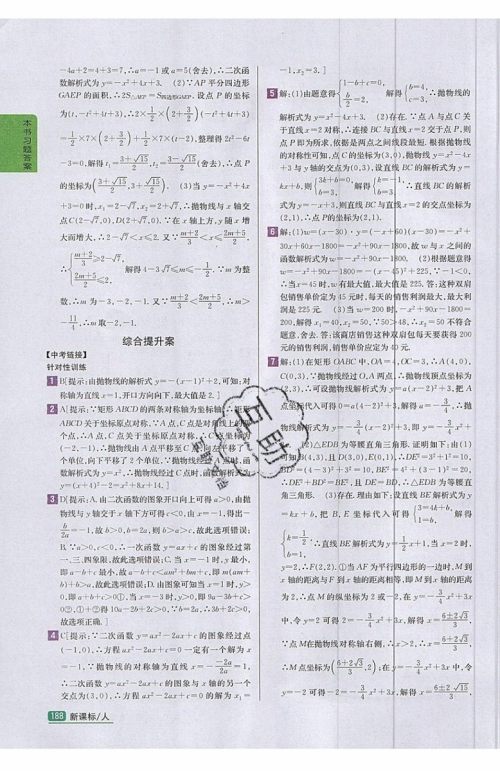 本书习题答案
-4a+2=4+3=7,∴a=-1或a=5(舍去),∴二次函
数解析式为y=-x²+4x+3. (2)∵AP平分四边形
GAEP的面积,∴2S△AEP=S四边形GAEP. 设点P的坐标
为(t,-t²+4t+3),∴2×1/2×(2+3/2)(-t²+4t+3)
3=0,解得t₁=(3+√15)/2,t₂=(3-√15)/2(舍去),∴点P
(3)当y=-x²+4x
+3=0时,x₁=2-√7,x₂=2+√7,∴抛物线与x轴交
点C(2-√7,0),D(2+√7,0).∵在x轴上方,y随x增
解得4-3√7≤m≤
∵m为整
数,∴m为-3,-2,-1.
,∴m取-2,-1.
综合提升案
【中考链接】
针对性训练
1 B[提示:由抛物线的解析式y=-(x-1)²+2,可知:对
称轴为直线x=1,开口方向向下,最大值是2.]
2 A[提示:∵矩形ABCD的两条对称轴为坐标轴,∴矩形
ABCD关于坐标原点对称,∵A点,C点是对角线上的
个点,∴A点、C点关于坐标原点对称,
(-2,-1),∴抛物线由A点平移至C点
单位,向下平移了2个单位.∵抛物线经过A点时,函
数解析式为y=x²,∴抛物线经过C点时,函数解析式为
y=(x+4)²-2=x²+8x+14.]
3 D[提示:A.由二次函数的图象开口向上可得a>0,由抛
物线与y轴交于x轴下方可得c<0,由x=1,得出
=-1,故b>0,b=2a,则b>a>c,故此选项错误;
B.∵a>0,c<0,∴一次函数y=ax+c的图象经过第
一、三、四象限,故此选项错误;C.当x=-1时,y最小,
即a-b+c最小,故a-b+c<am²+bm+c,即m(am+
b)+b>a,故此选项错误;D.由图象可知当x=1时,y>
0,即a+b+c>0①,当x=-3时,y>0,即9a-3b+c>
0②,①+②得10a-2b+2c>0,∵b=2a,∴3b+2c>0,
故选项正确.]
4 C[提示:∵二次函数y=ax²-2ax+c的图象经过点
(-1,0),∴方程ax²-2ax+c=0一定有一个解为x
=-1.∵抛物线的对称轴为直线x=-(-2a)/(2a)=1,
∴二次函数y=ax²-2ax+c的图象与x轴的另一个
交点为(3,0),∴方程ax²-2ax+c=0的解为x₁=
188 新课标/人
-1,x₂=3.]
5 解:(1)由题意得{1-b+c=0, b/2=2, 解得{b=4, c=-3. ∴抛物线的
解析式为y=-x²+4x-3. (2)存在.∵点A与点C关
于直线x=2对称,∴连接BC与直线x=2交于点P,则
点P即为所求,根据是两点之间线段最短.根据抛物线
的对称性可知,点C的坐标为(3,0),抛物线y=-x²+4x
-3与y轴的交点为(0,3),设直线BC的解析式为y=
kx+b,则{3k+b=0, b=3, 解得{k=-1, b=3. ∴直线BC的解析
式为y=-x+3,则直线BC与直线x=2的交点坐标为
(2,1).∴点P的坐标为(2,1).
6 解:(1)w=(x-30)·y=(-x+60)(x-30)=-x²+
30x+60x-1800=-x²+90x-1800,故w与x之间的
函数解析式为w=-x²+90x-1800. (2)根据题意得
w=-x²+90x-1800=-(x-45)²+225,∵-1<0,
∴当x=45时,w有最大值,最大值是225. 答:这种双肩
包销售单价定为45元时,每天的销售利润最大,最大利
润是225元. (3)当w=200时,-x²+90x-1800=
200,解得x₁=40,x₂=50,∵50>48,∴x₂=50不符合
题意,舍去.答:该商店销售这种双肩包每天要获得200
元的销售利润,销售单价应定为40元.
7 解:(1)在矩形OABC中,OA=4,OC=3,∴A(4,0),
C(0,3),∵抛物线经过O,A两点,∴抛物线顶点坐标为
(2,3),∴可设抛物线解析式为y=a(x-2)²+3,把A
点坐标代入可得0=a(4-2)²+3,解得a=-3/4,∴抛
物线解析式为y=-3/4(x-2)²+3,即y=-3/4x²+
3x. (2)△EDB为等腰直角三角形.证明如下:由(1)
可知B(4,3),且D(3,0),E(0,1),∴DE²=3²+1²=10,
BD²=(4-3)²+3²=10,BE²=4²+(3-1)²=20,
∴DE²+BD²=BE²,且DE=BD,∴△EDB为等腰直
角三角形. (3)存在.理由如下:设直线BE解析式为y
=kx+b,把B,E坐标代入可得{3=4k+b, 1=b, 解得
{k=1/2, b=1, ∴直线BE解析式为y=1/2x+1,当x=2时,
y=2,∴F(2,2).①当AF为平行四边形的一边时,M到
x轴的距离与F到x轴的距离相等,即M到x轴的距离
为2,∴点M的纵坐标为2或-2,在y=-3/4x²+3x
中,令y=2可得2=-3/4x²+3x,解得x=(6±2√3)/3,
∵点M在抛物线对称轴右侧,∴x>2,∴x=(6+2√3)/3,
∴M点坐标为((6+2√3)/3,2);在y=-3/4x²+3x中,令
y=-2可得-2=-3/4x²+3x,解得x=(6±2√15)/3,